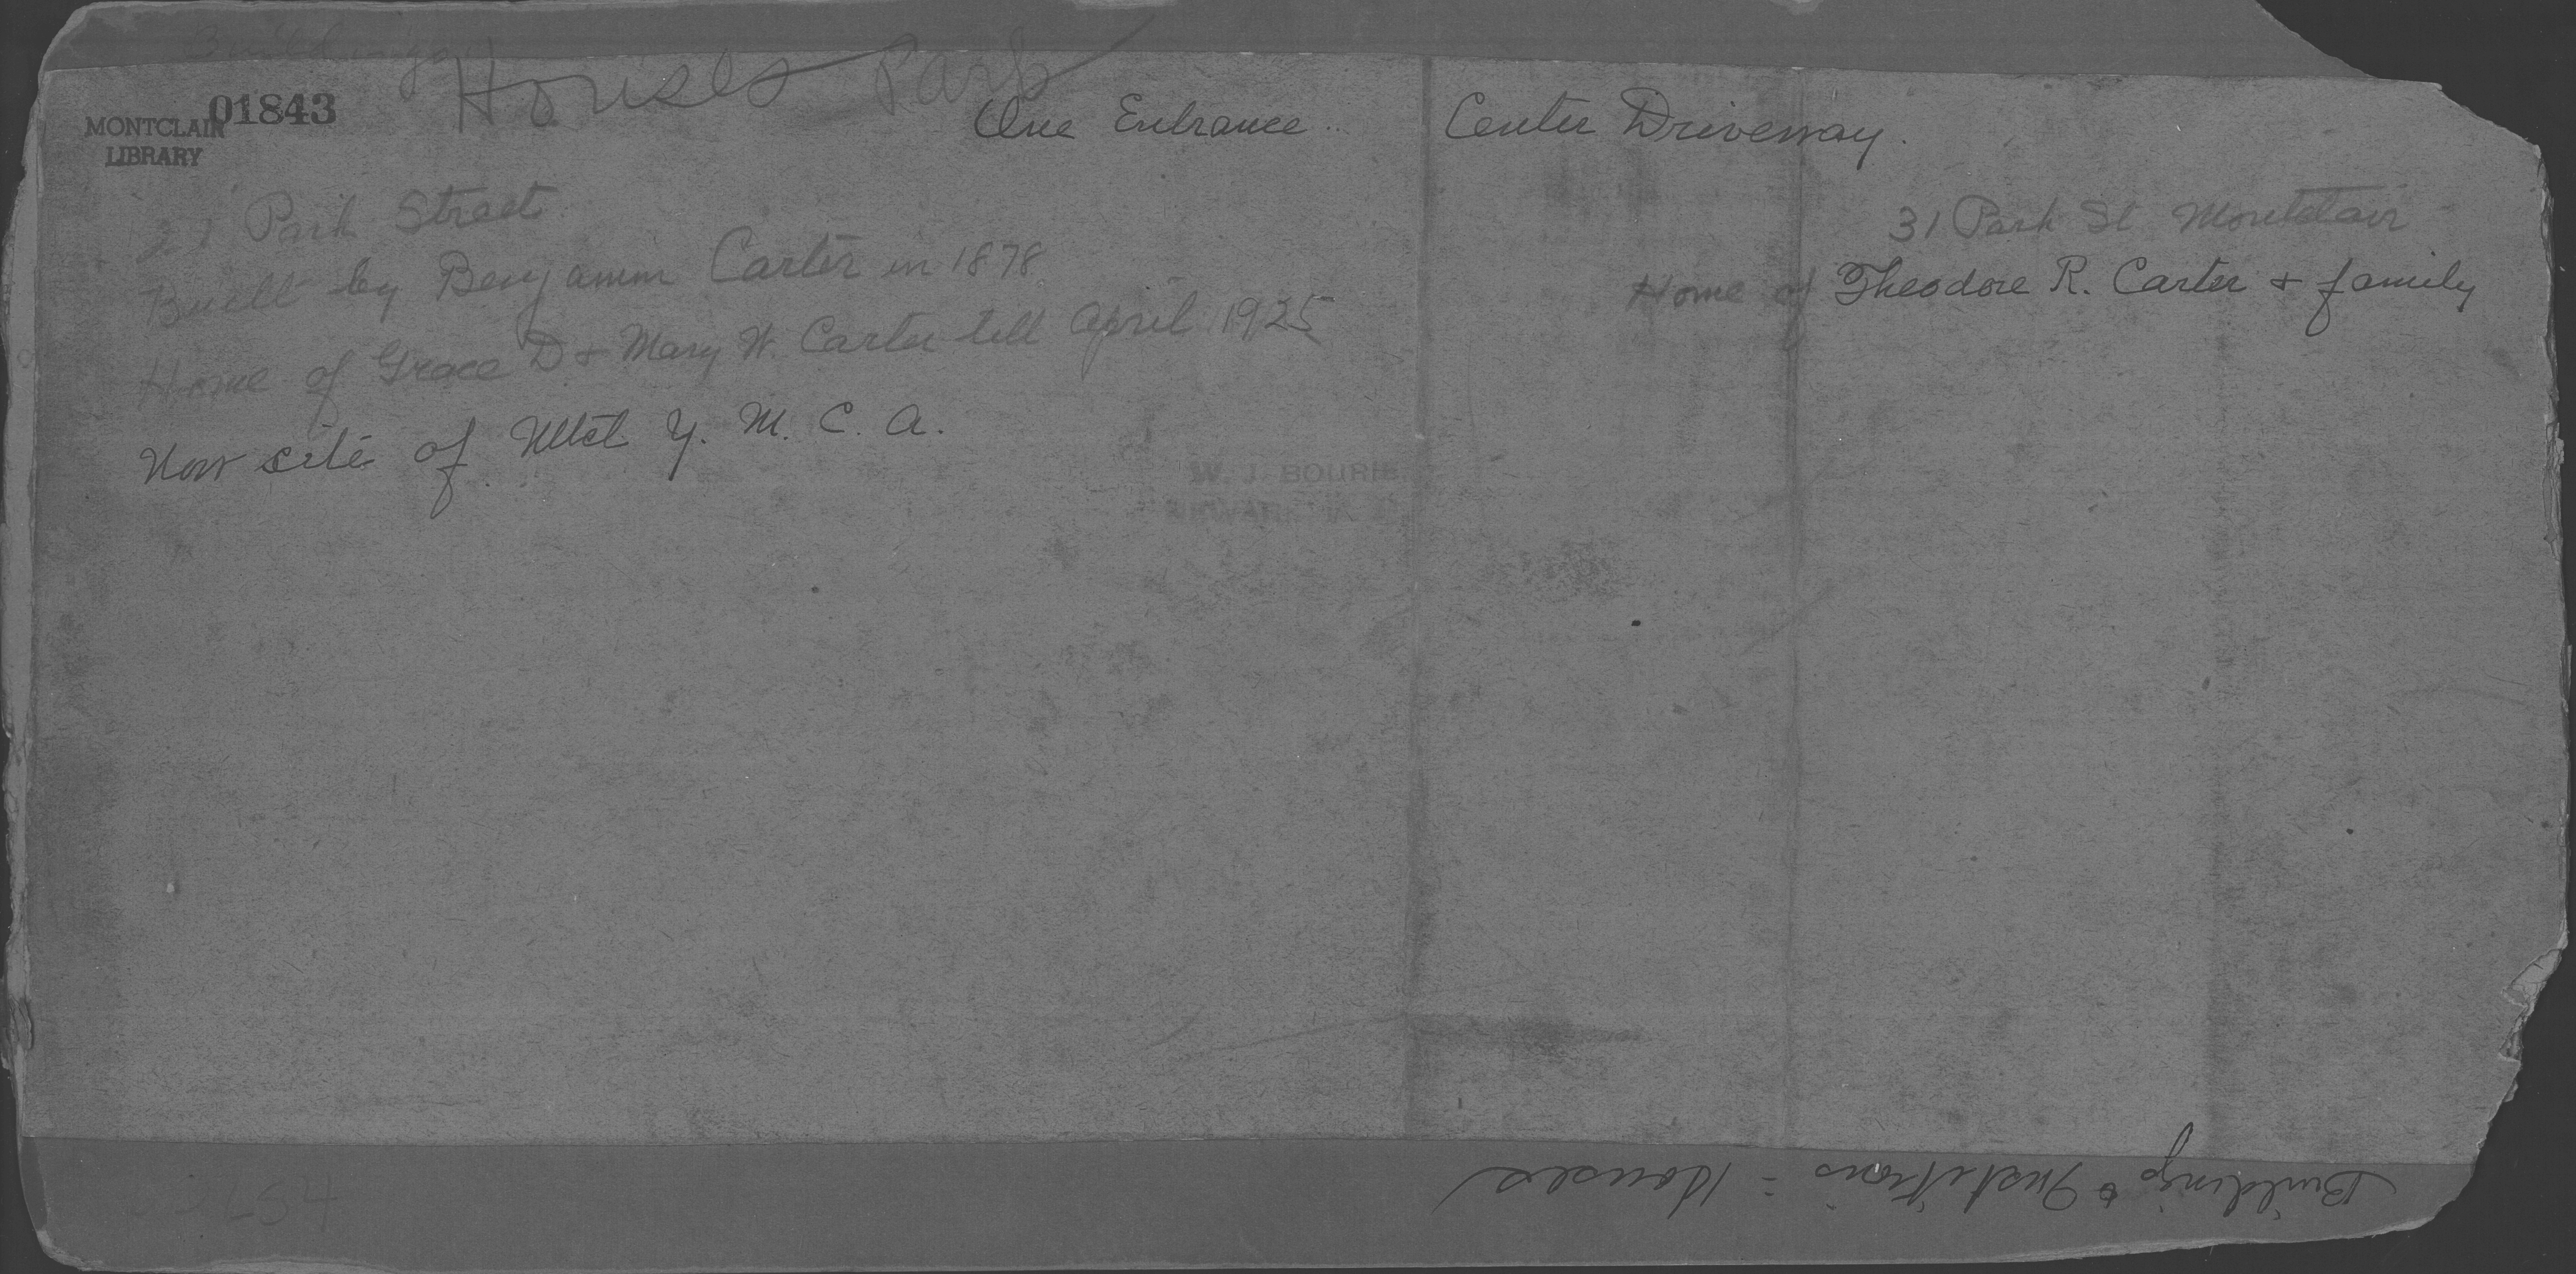 Buildings
Houses Park
01843
MONTCLAIR
LIBRARY
One Entrance.. Center Driveway.
21 Park Street
Built by Benjamin Carter in 1878
Home of Grace D & Mary W. Carter till April 1925
Now site of Mtcl Y. M. C. A.
31 Park St Montclair
Home of Theodore R. Carter & family
W. J. BOURIE
NEWARK, N. J.
Buildings & Institutions = Houses